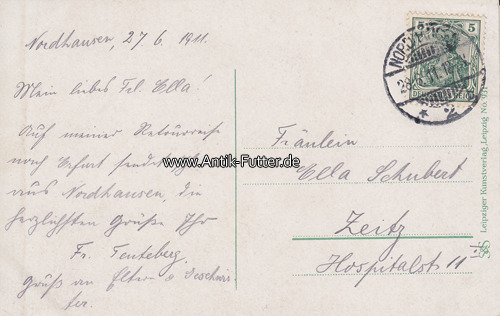 Nordhausen, 27.6.1911.
Mein liebes Frl. Ella!
Auf meiner Retourreise
nach Erfurt sende
aus Nordhausen, die
herzlichsten Grüße Ihr
Fr. Tenteberg.
Gruß an Eltern u Geschwi-
ster.
www.Antik-Futter.de
5
NORDHAUSEN
2
Fräulein
Ella Schubert
Zeitz
Hospitalstr 11
Leipziger Kunstverlag, Leipzig No.